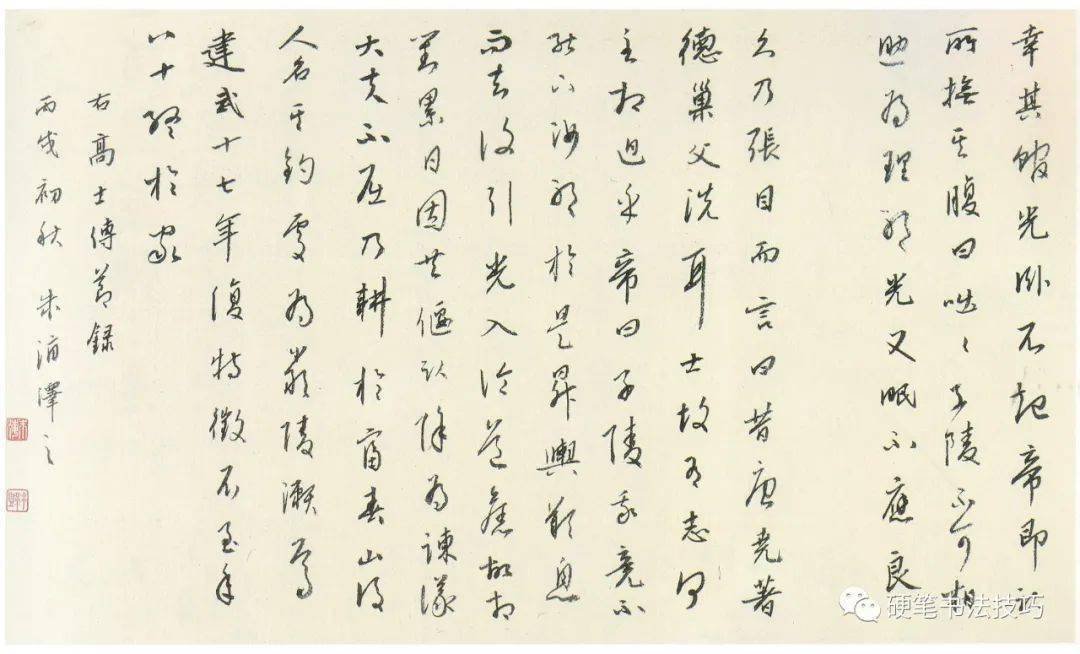 幸其館光臥不起帝即臥
所撫其腹曰咄咄子陵不可相
助為理邪光又眠不應良
久乃張目而言曰昔唐堯著
德巢父洗耳士故有志何
至相迫乎帝曰子陵我竟不
能下汝邪於是昇輿歎息
而去復引光入論道舊故相
對累日因共偃臥除為諫議
大夫不屈乃耕於富春山後
人名其釣處為嚴陵瀨焉
建武十七年復特徵不至年
八十終於家
右高士傳節錄
丙戌初秋 朱澤之
硬笔书法技巧